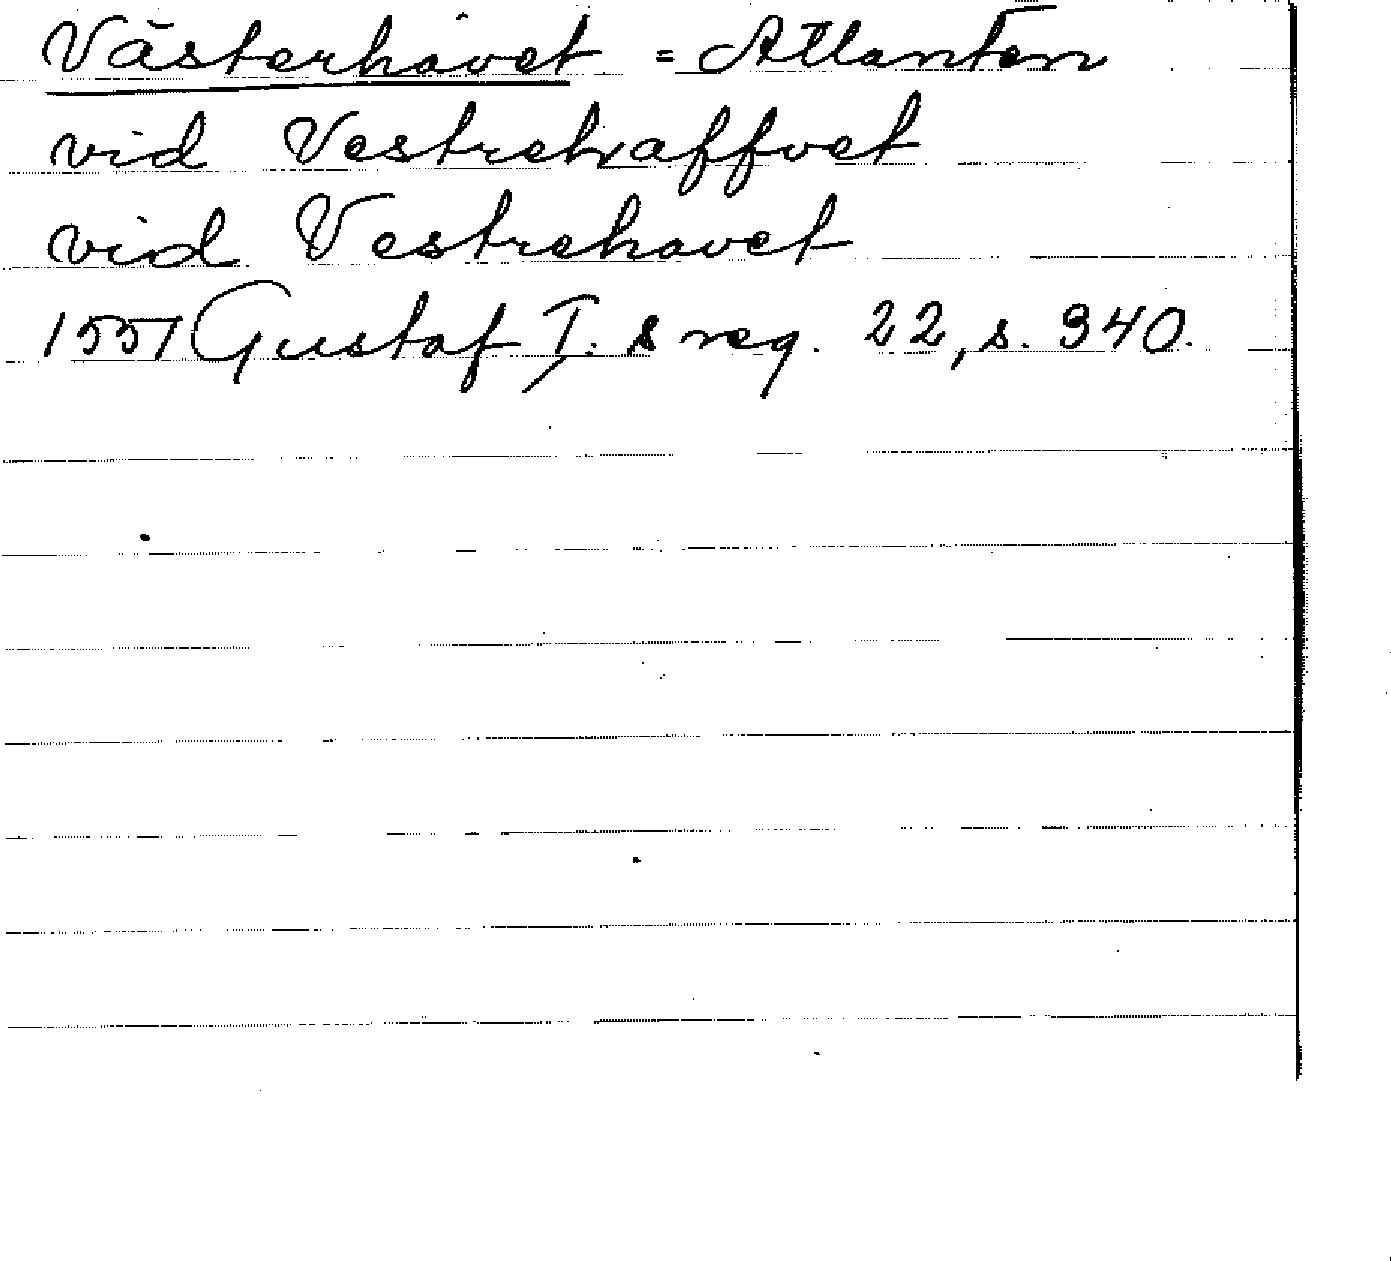 Västerhavet = Atlanten
vid Vestrehaffvet
vid Vestrehavet
1551 Gustaf I:s reg. 22, s. 340.